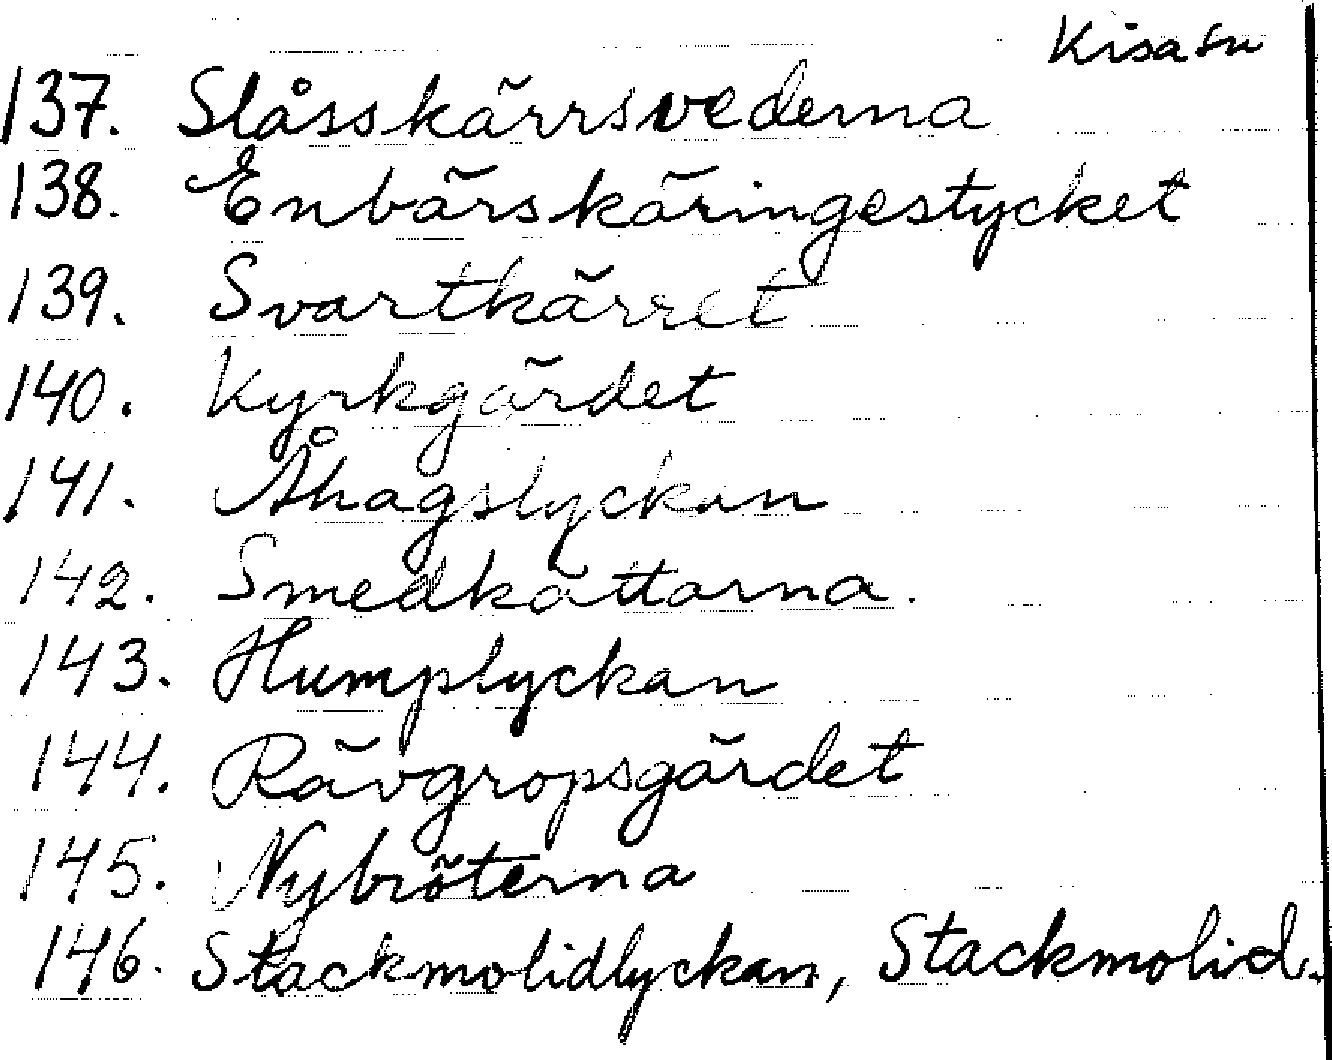 Kisa sn
137. Slåsskärrsvederna
138. Enbärskäringestycket
139. Svartkärret
140. Kyrkgärdet
141. Åhagslyckan
142. Smedkattarna.
143. Humplyckan
144. Rävgropsgärdet
145. Nybröterna
146. Stackmolidlyckan, Stackmolid.